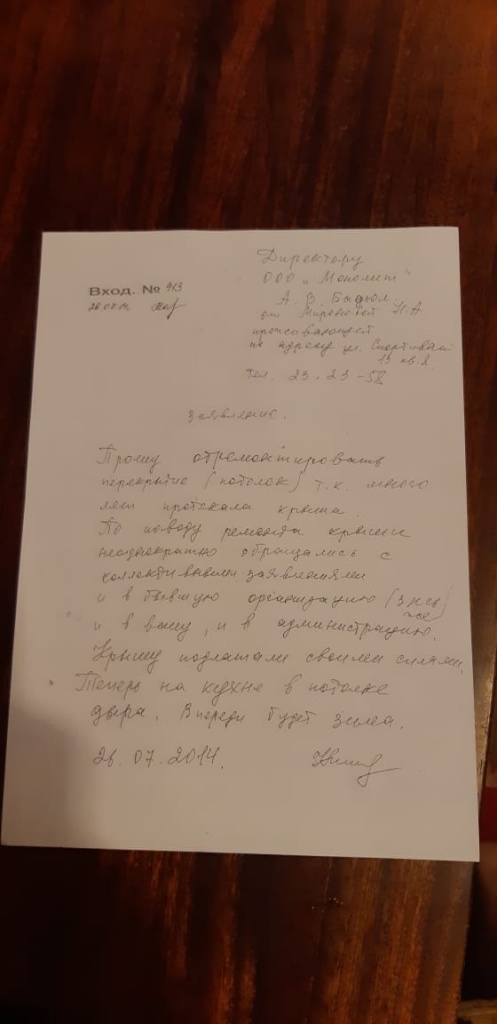 Директору
ООО „Монолит"
Вход. № 913
А. В.
от Н. А
проживающей
по адресу ул. Спортивная
13 кв. 2.
тел. 23-23-58
заявление.
Прошу отремонтировать
перекрытие (потолок) т.к. много
лет протекала крыша.
По поводу ремонта крыши
неоднократно обращались с
коллективными заявлениями
и в бывшую организацию
и в вашу, и в администрацию.
Крышу подлатали своими силами.
Теперь на кухне в потолке
дыра. Впереди будет зима.
26.07.2014.